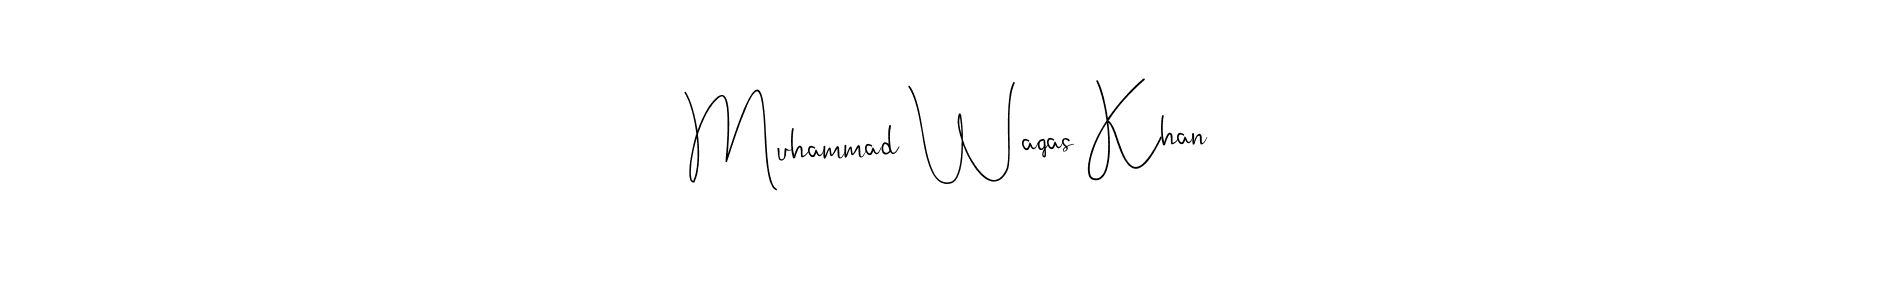 Muhammad Waqas Khan